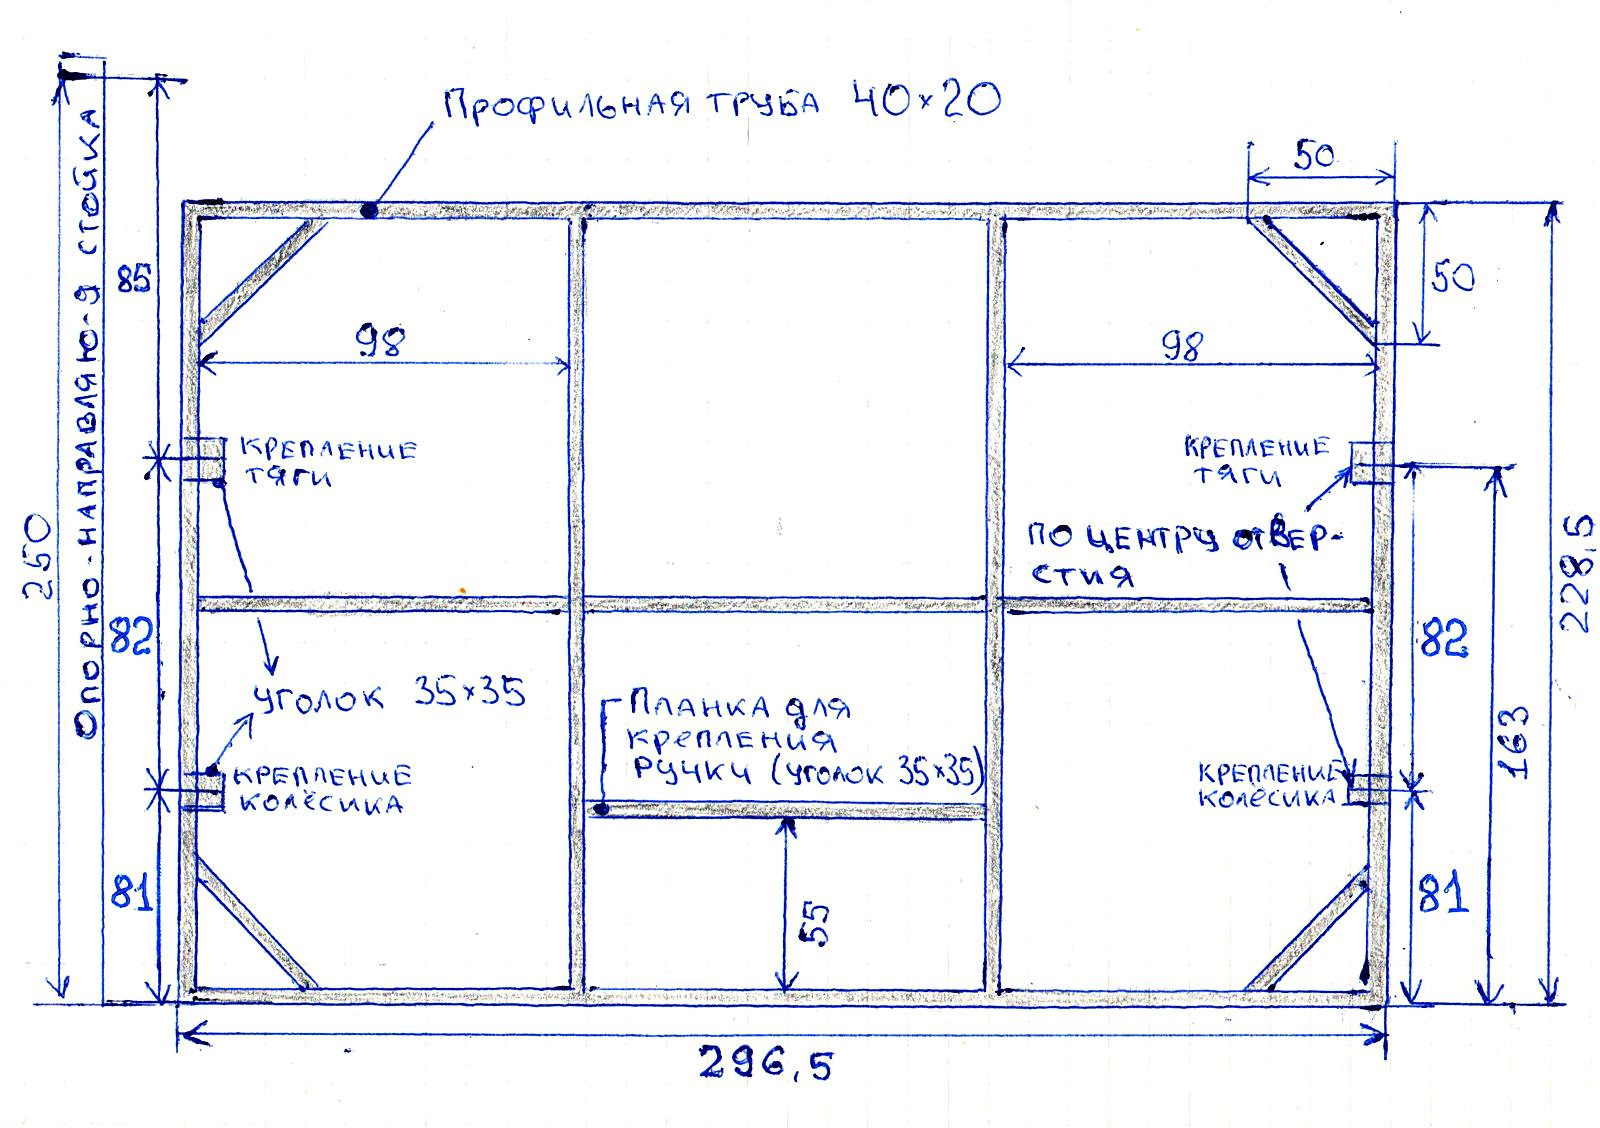 Профильная труба 40×20
50
50
85
98
98
Опорно-направляю-я стойка
Крепление
тяги
Крепление
тяги
По центру отвер-
стия
250
228,5
82
82
163
уголок 35×35
Планка для
крепления
ручки (уголок 35×35)
Крепление
колёсика
Крепление
колёсика
81
81
55
296,5